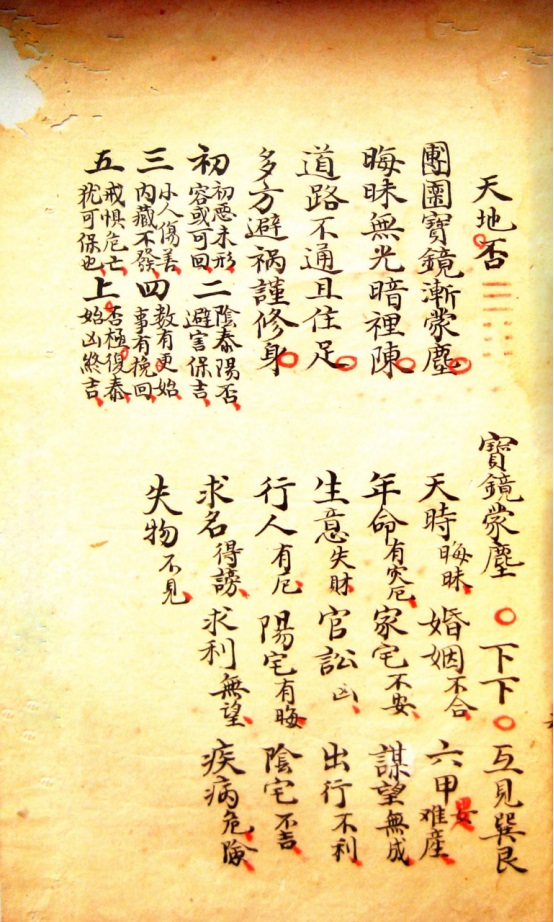 天地否
團團寶鏡漸蒙塵
晦昧無光暗裡陳
道路不通且住足
多方避禍謹修身
初 初惡未形 容或可回 二 陰泰陽否 避害保吉
三 小人傷善 內藏不發 四 數有更始 事有挽回
五 戒惧危亡 犹可保也 上 否極復泰 始凶終吉
寶鏡蒙塵 下下 互見巽艮
天時 晦昧 婚姻 不合 六甲 难産
年命 有灾厄 家宅 不安 謀望 無成
生意 失財 官訟 凶 出行 不利
行人 有厄 陽宅 有晦 陰宅 不吉
求名 得謗 求利 無望 疾病 危險
失物 不見